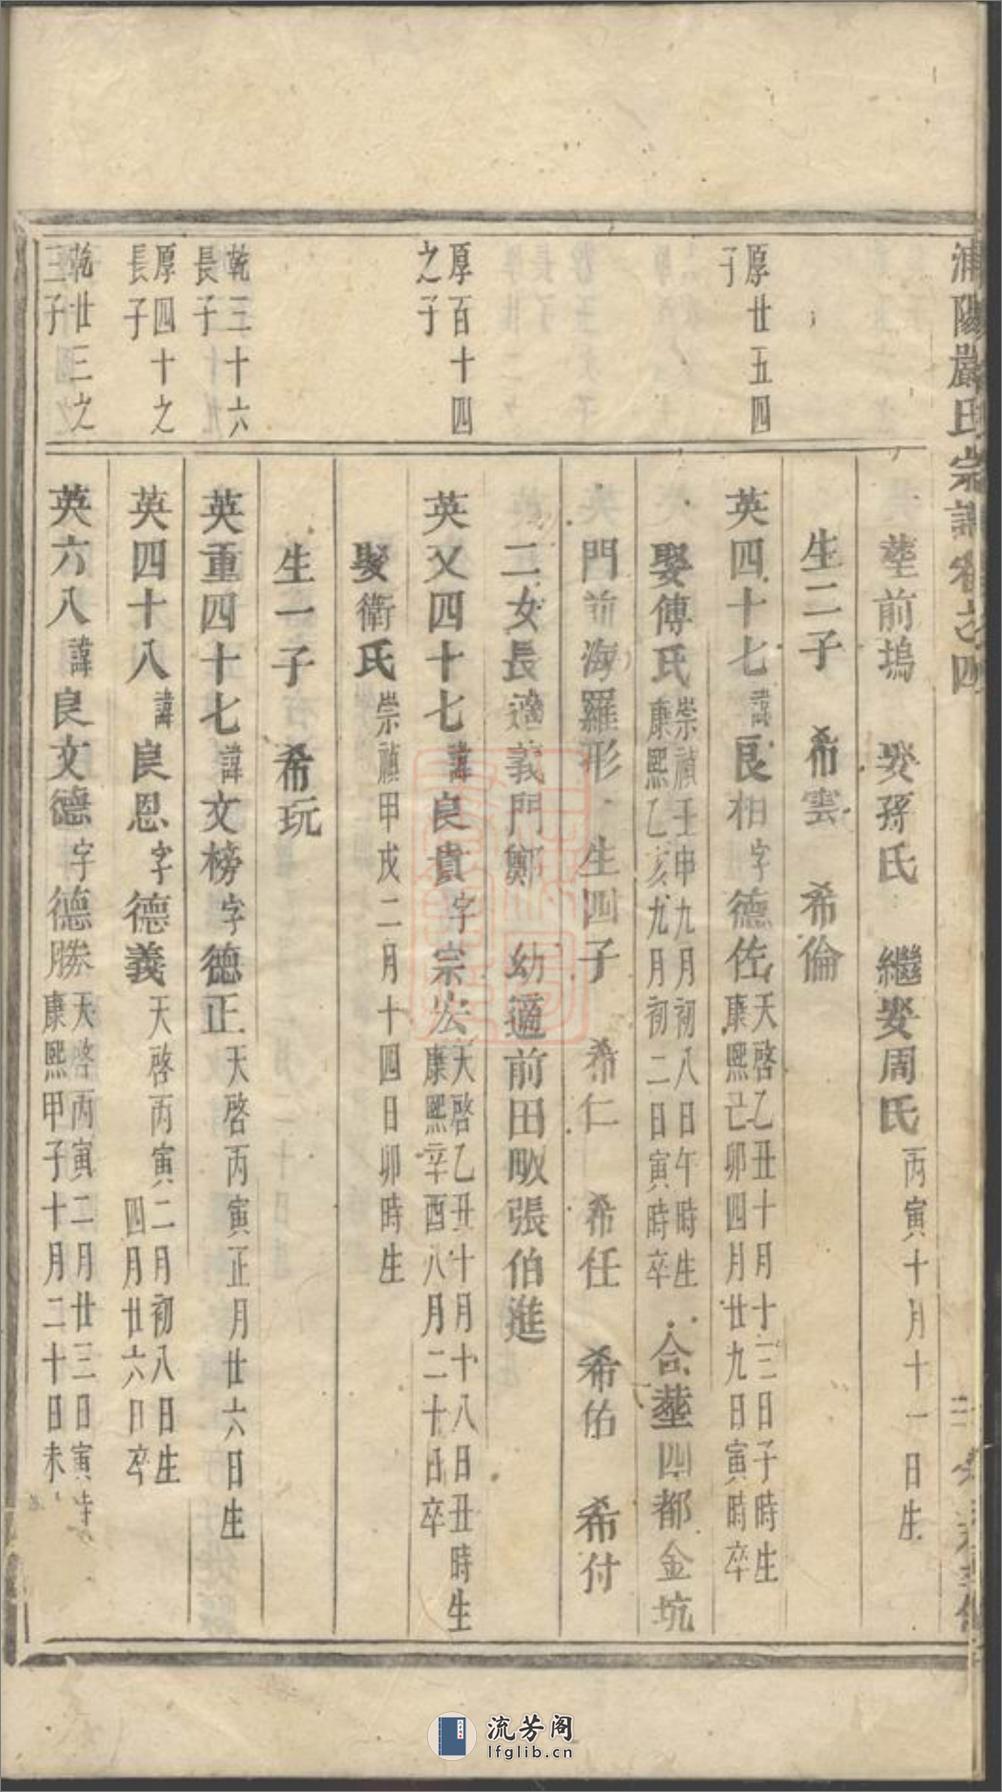 浦陽嚴氏宗譜卷之四
塟前塢　娶孫氏　繼娶周氏丙寅十月十一日生
生二子　希雲　希倫
厚廿五四子
英四十七諱良相字德佐天啓乙丑十月十三日子時生康熙己卯四月廿九日寅時卒
娶傅氏崇禎壬申九月初八日午時生康熙乙亥九月初二日寅時卒合塟四都金坑
門前海羅形　生四子　希仁　希任　希佑　希付
二女長適義門鄭　幼適前田畈張伯進
厚百十四之子
英又四十七諱良貴字宗宏天啓乙丑十月十八日丑時生康熙辛酉八月二十日卒
娶衛氏崇禎甲戌二月十四日卯時生
生一子　希玩
乾三十六長子
英重四十七諱文榜字德正天啓丙寅正月廿六日生
厚四十之長子
英四十八諱良恩字德義天啓丙寅二月初八日生四月廿六日卒
乾廿三之三子
英六八諱良文德字德勝天啓丙寅二月廿三日寅時康熙甲子十月二十日未
流芳阁
lfglib.cn